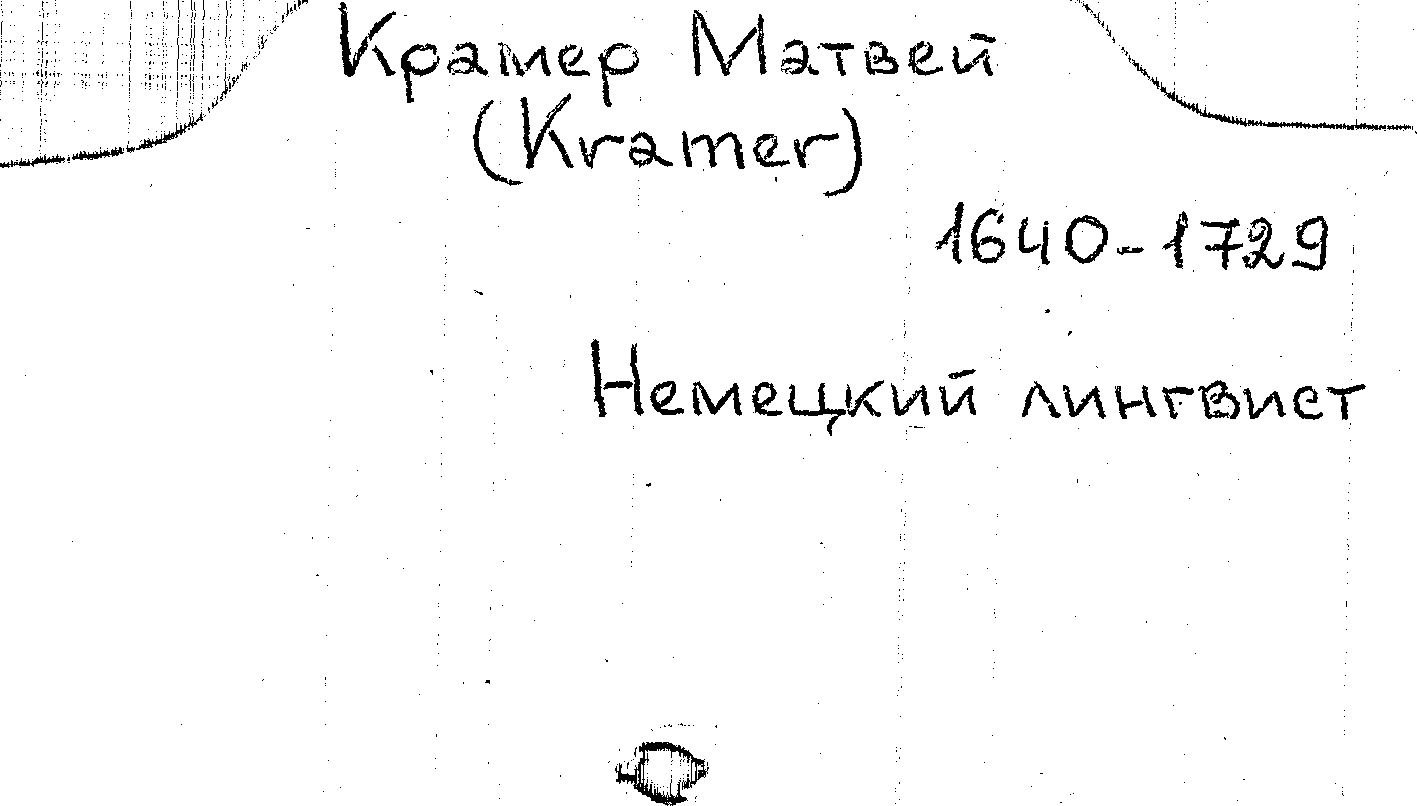 Крамер Матвей
(Kramer)
1640-1729
Немецкий лингвист